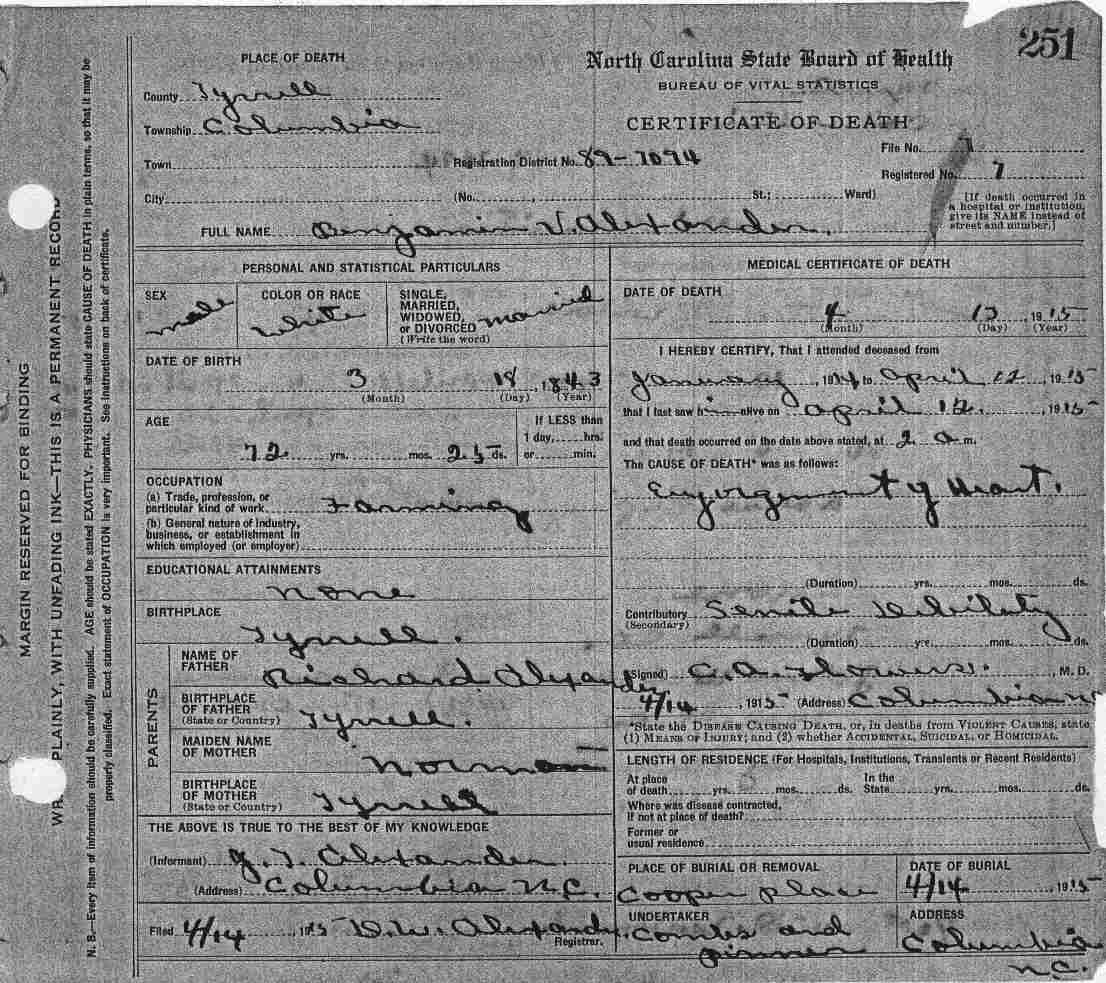 251
North Carolina State Board of Health
BUREAU OF VITAL STATISTICS
CERTIFICATE OF DEATH
PLACE OF DEATH
County Tyrrell
Township Columbia
Town Registration District No. 89-7094
File No. 7
Registered No. 7
City (No. , St.; Ward)
[If death occurred in
a hospital or institution,
give its NAME instead of
street and number.]
FULL NAME Benjamin V. Alexander.
PERSONAL AND STATISTICAL PARTICULARS
SEX
male
COLOR OR RACE
white
SINGLE,
MARRIED,
WIDOWED,
or DIVORCED married
(Write the word)
DATE OF BIRTH
3 18 1843
(Month) (Day) (Year)
AGE
72 yrs. mos. 25 ds.
If LESS than
1 day, hrs.
or min.
OCCUPATION
(a) Trade, profession, or
particular kind of work Farming
(b) General nature of industry,
business, or establishment in
which employed (or employer)
EDUCATIONAL ATTAINMENTS
none
BIRTHPLACE
Tyrrell.
PARENTS
NAME OF
FATHER
Richard Alexander
BIRTHPLACE
OF FATHER
(State or Country) Tyrrell.
MAIDEN NAME
OF MOTHER
Norman
BIRTHPLACE
OF MOTHER
(State or Country) Tyrrell
THE ABOVE IS TRUE TO THE BEST OF MY KNOWLEDGE
(Informant) J. T. Alexander.
(Address) Columbia N.C.
Filed 4/14 1915 D. W. Alexander.
Registrar.
MEDICAL CERTIFICATE OF DEATH
DATE OF DEATH
4 13, 1915
(Month) (Day) (Year)
I HEREBY CERTIFY, That I attended deceased from
January, 1914 to April 12 1915
that I last saw him alive on April 12. 1915
and that death occurred on the date above stated, at 2 a m.
The CAUSE OF DEATH* was as follows:
Engorgement of Heart.
(Duration) yrs. mos. ds.
Contributory Senile Debility
(Secondary)
(Duration) yrs. mos. ds.
(Signed) C. A. Flowers. , M. D.
4/14, 1915 (Address) Columbia N
*State the DISEASE CAUSING DEATH, or, in deaths from VIOLENT CAUSES, state
(1) MEANS OF INJURY; and (2) whether ACCIDENTAL, SUICIDAL, or HOMICIDAL.
LENGTH OF RESIDENCE (For Hospitals, Institutions, Transients or Recent Residents)
At place
of death yrs. mos. ds.
In the
State yrs. mos. ds.
Where was disease contracted,
If not at place of death?
Former or
usual residence
PLACE OF BURIAL OR REMOVAL
Cooper place
DATE OF BURIAL
4/14 1915
UNDERTAKER
Combs and
Pinner
ADDRESS
Columbia
N.C.
MARGIN RESERVED FOR BINDING
PLAINLY, WITH UNFADING INK—THIS IS A PERMANENT RECORD
N. B.—Every item of information should be carefully supplied. AGE should be stated EXACTLY. PHYSICIANS should state CAUSE OF DEATH in plain terms, so that it may be
properly classified. Exact statement of OCCUPATION is very important. See instructions on back of certificate.